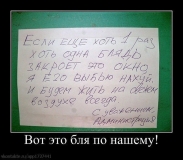 Если еще хоть 1 раз
хоть одна блядь
закроет это окно,
я его выбью нахуй.
И будем жить на свежем
воздухе всегда
С уважением
Администрация
Вот это бля по нашему!